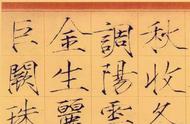 秋收冬
調陽雲
金生麗
巨闕珠